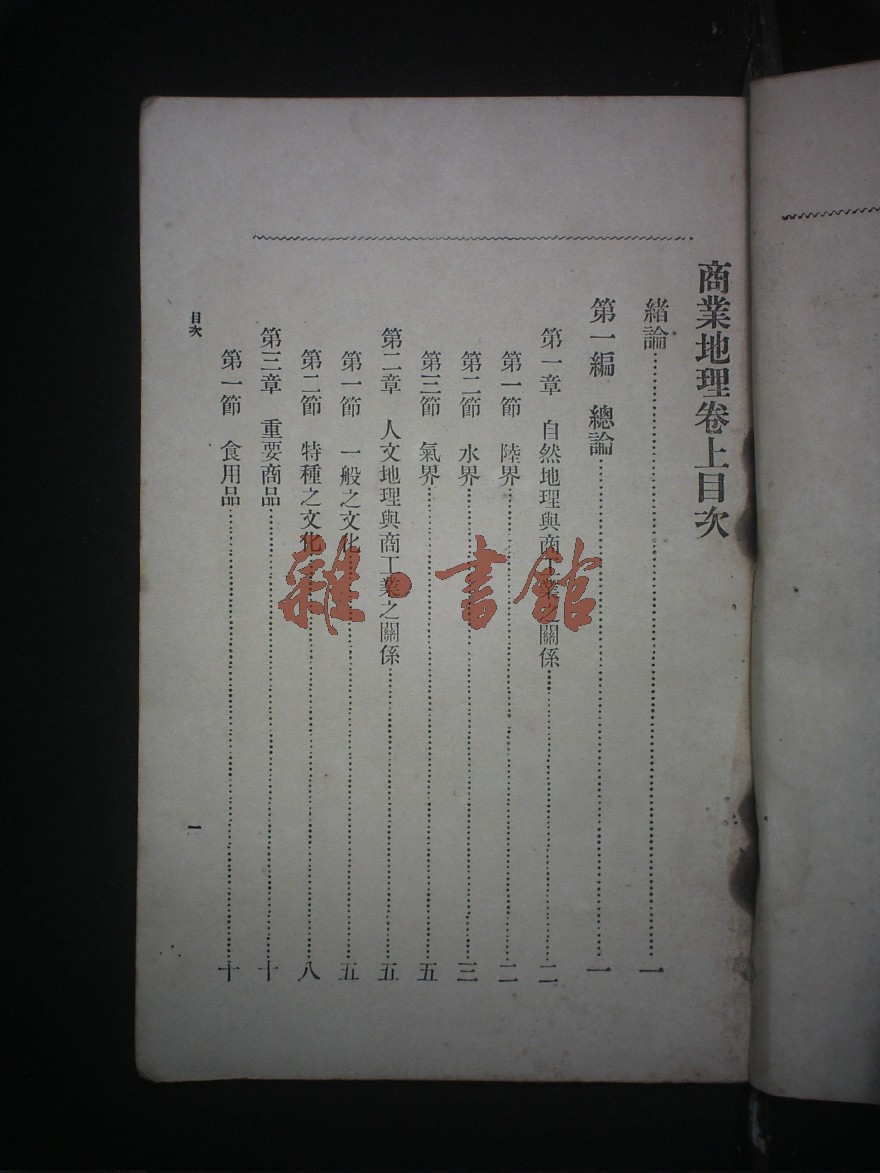 商業地理卷上目次
緒論……一
第一編　總論……一
第一章　自然地理與商工業之關係……二
第一節　陸界……二
第二節　水界……三
第三節　氣界……五
第二章　人文地理與商工業之關係……五
第一節　一般之文化……五
第二節　特種之文化……八
第三章　重要商品……十
第一節　食用品……十
目次
一
雜·書館